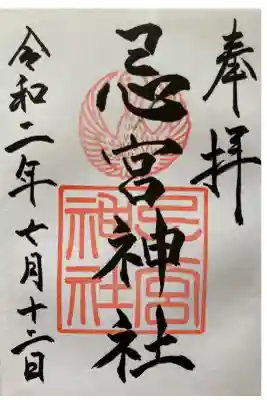 奉拝
忌宮神社
忌宮
神社
令和二年七月十二日